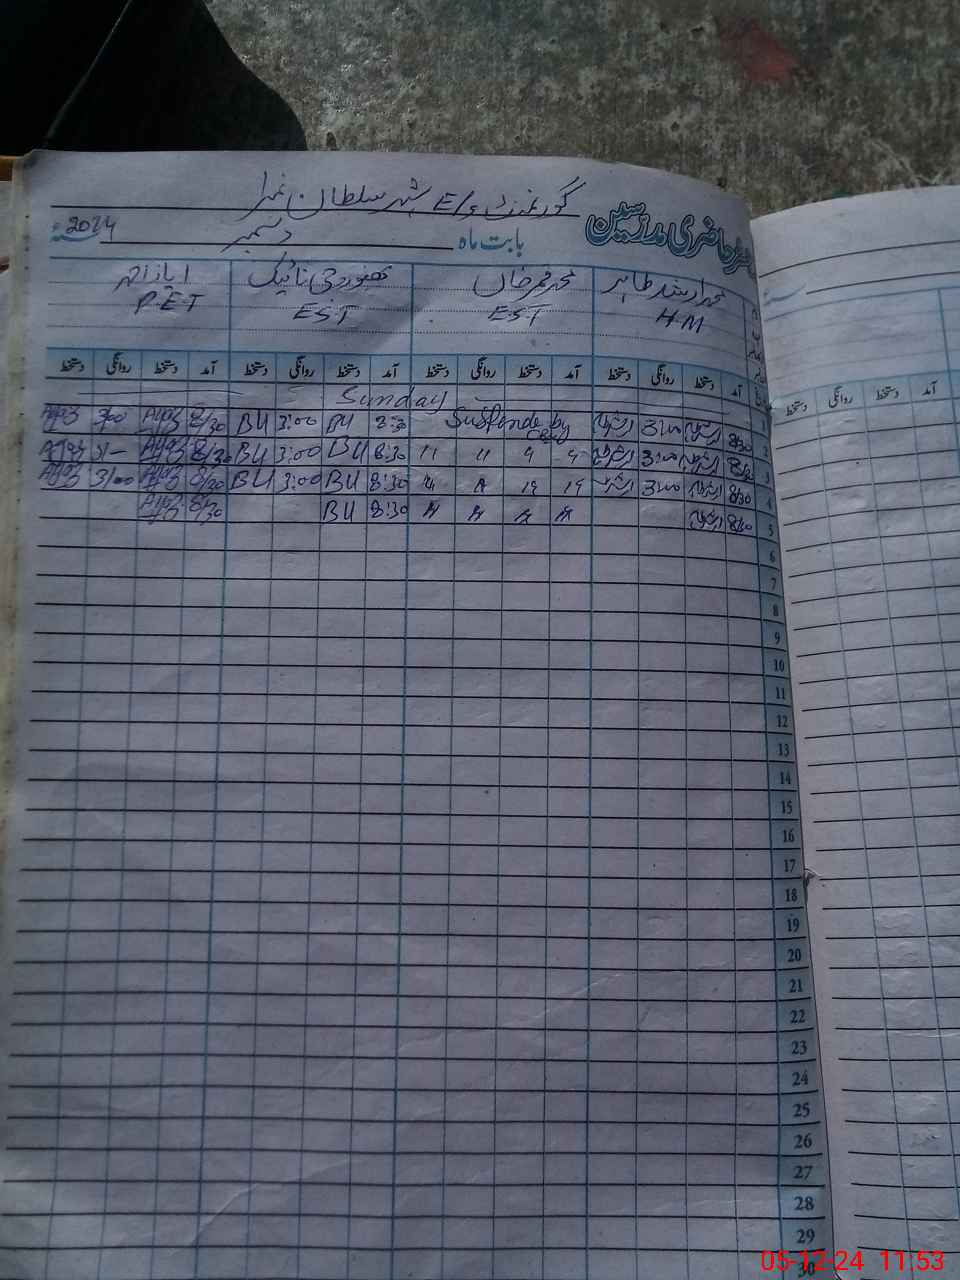 گورنمنٹ E/S شہر سلطان نمبرا
رجسٹر حاضری مدرسین
بابت ماہ دسمبر 2024
محمد ارشد طاہر محمد قمر خاں نائیک ایاز احمد
H M EST EST P.E.T
آمد دستخط روانگی دستخط آمد دستخط روانگی دستخط آمد دستخط روانگی دستخط آمد دستخط روانگی دستخط
1 Sunday
2 8/30 3:00 Suspende by 8:30 BU 3:00 BU 8/30 Ayaz 3/00 Ayaz
3 8/30 3:00 " " " " 8:30 BU 3:00 BU 8/30 Ayaz 3/- Ayaz
4 8/30 3:00 " " " " 8:30 BU 3:00 BU 8/30 Ayaz 3/00 Ayaz
5 8/30 " " " " 8:30 BU 8/30 Ayaz
6
7
8
9
10
11
12
13
14
15
16
17
18
19
20
21
22
23
24
25
26
27
28
29
30
آمد دستخط روانگی دستخط
05-12-24 11:53